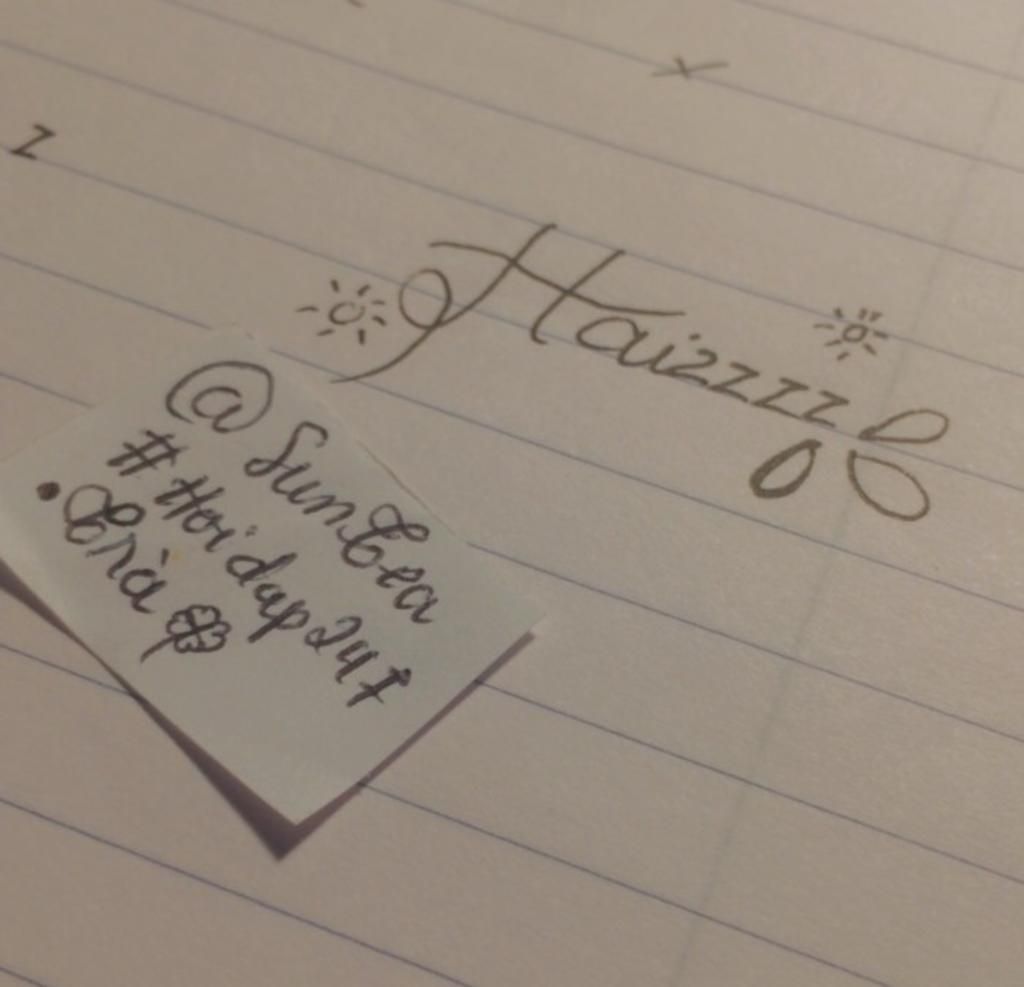 z
Haizzzz
@Suntea
#Hoidap247
•Trà